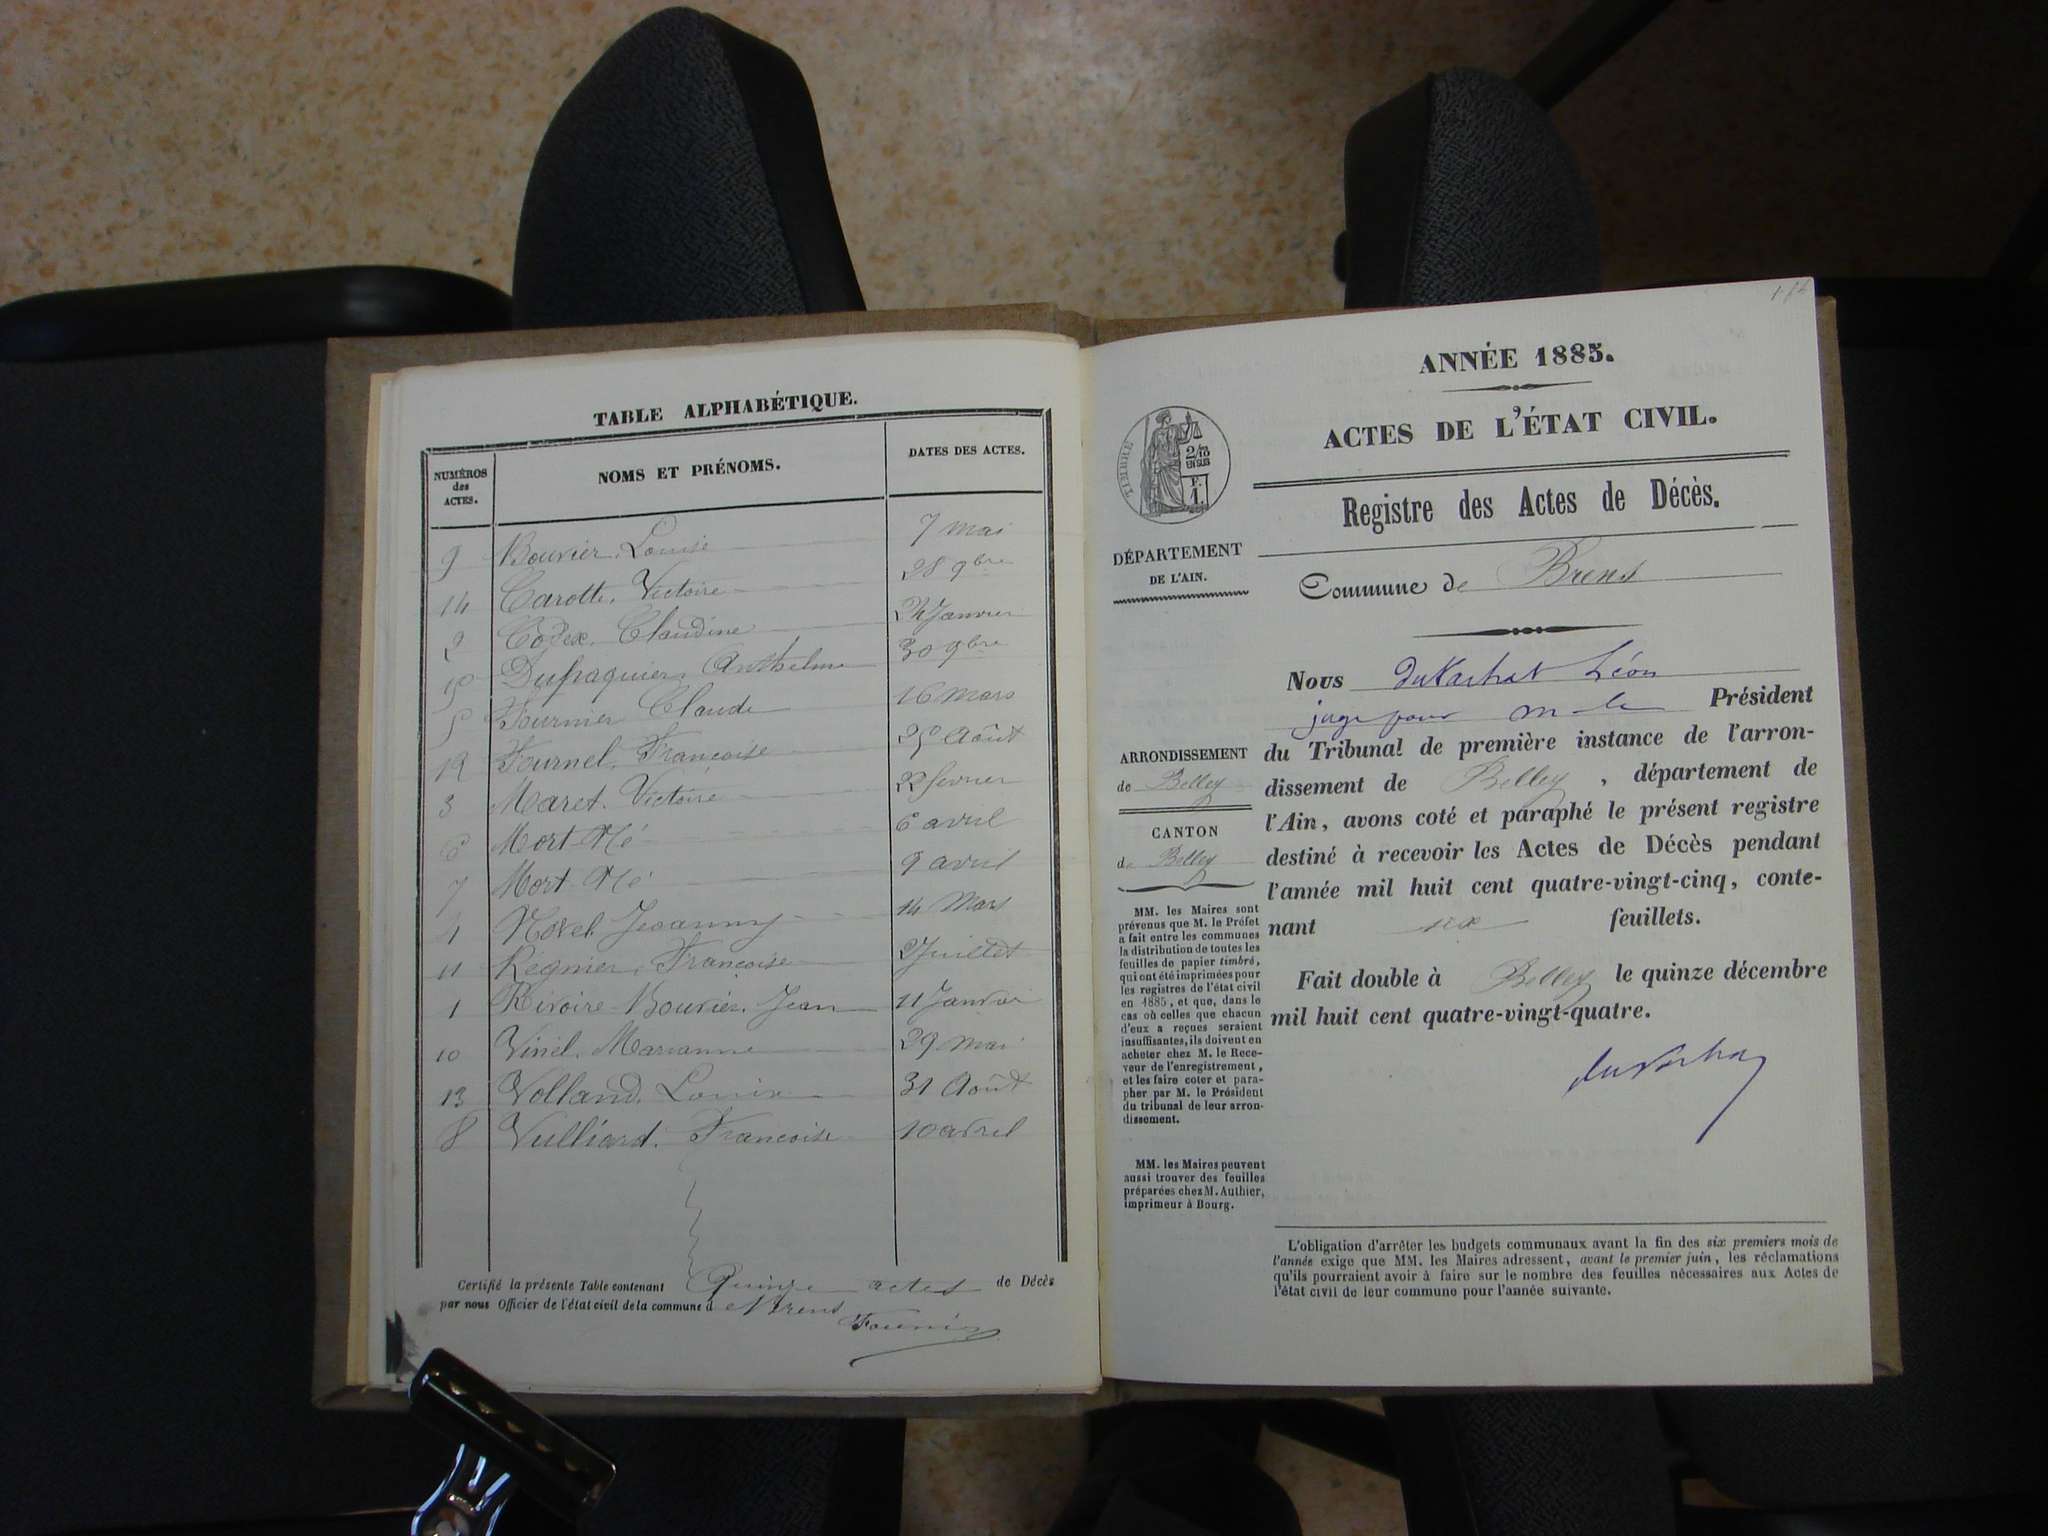 TABLE ALPHABÉTIQUE.
NUMÉROS des ACTES. NOMS ET PRÉNOMS. DATES DES ACTES.
9 Bouvier, Louise 7 mai
14 Carotte, Victoire 28 9bre
2 Codex, Claudine 24 Janvier
15 Dufraquier, Anthelme 30 9bre
5 Fournier Claude 16 mars
12 Fournel, Françoise 25 Août
3 Maret, Victoire 22 fevrier
6 Mort-Né 6 avril
7 Mort-Né 9 avril
4 Novel Jeanny 14 Mars
11 Regnier, Françoise 2 Juillet
1 Rivoire-Bouvier, Jean 11 Janvier
10 Vinel, Marianne 29 mai
13 Volland, Louise 31 Août
8 Vulliard, Françoise 10 avril
Certifié la présente Table contenant Quinze actes de Décès
par nous Officier de l'état civil de la commune d Brens
Fournier
ANNÉE 1885.
ACTES DE L'ÉTAT CIVIL.
Registre des Actes de Décès.
TIMBRE
2/10
EN SUS
F.
1.
DÉPARTEMENT
DE L'AIN.
Commune de Brens
ARRONDISSEMENT
de Belley
CANTON
de Belley
MM. les Maires sont
prévenus que M. le Préfet
a fait entre les communes
la distribution de toutes les
feuilles de papier timbré,
qui ont été imprimées pour
les registres de l'état civil
en 1885, et que, dans le
cas où celles que chacun
d'eux a reçues seraient
insuffisantes, ils doivent en
acheter chez M. le Rece-
veur de l'enregistrement,
et les faire coter et para-
pher par M. le Président
du tribunal de leur arron-
dissement.
MM. les Maires peuvent
aussi trouver des feuilles
préparées chez M. Authier,
imprimeur à Bourg.
Nous Léon
juge pour M le Président
du Tribunal de première instance de l'arron-
dissement de Belley, département de
l'Ain, avons coté et paraphé le présent registre
destiné à recevoir les Actes de Décès pendant
l'année mil huit cent quatre-vingt-cinq, conte-
nant six feuillets.
Fait double à Belley le quinze décembre
mil huit cent quatre-vingt-quatre.
L'obligation d'arrêter les budgets communaux avant la fin des six premiers mois de
l'année exige que MM. les Maires adressent, avant le premier juin, les réclamations
qu'ils pourraient avoir à faire sur le nombre des feuilles nécessaires aux Actes de
l'état civil de leur commune pour l'année suivante.